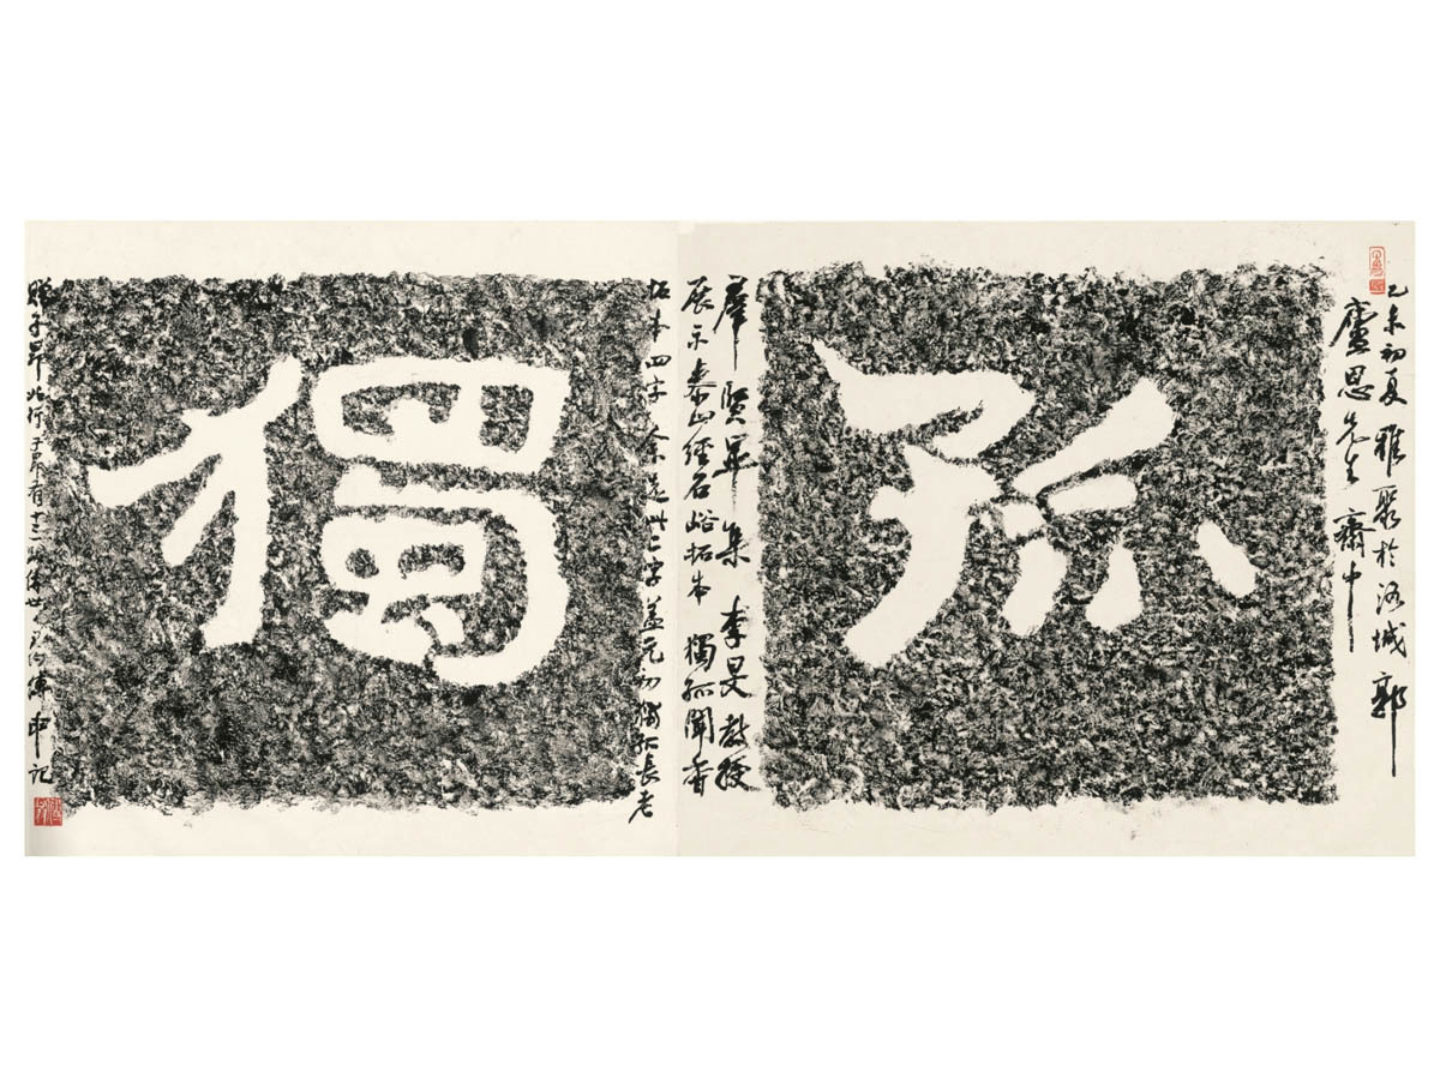 乙未初夏雅聚於洛城郭
盧恩先生齋中
孤
羣賢畢集李旻教授
展示泰山經石峪拓本獨孤聞香
拓本四字余選此二字蓋元初獨孤長老
獨
贈子昂北行于昂有十三跋傳世
傅申記